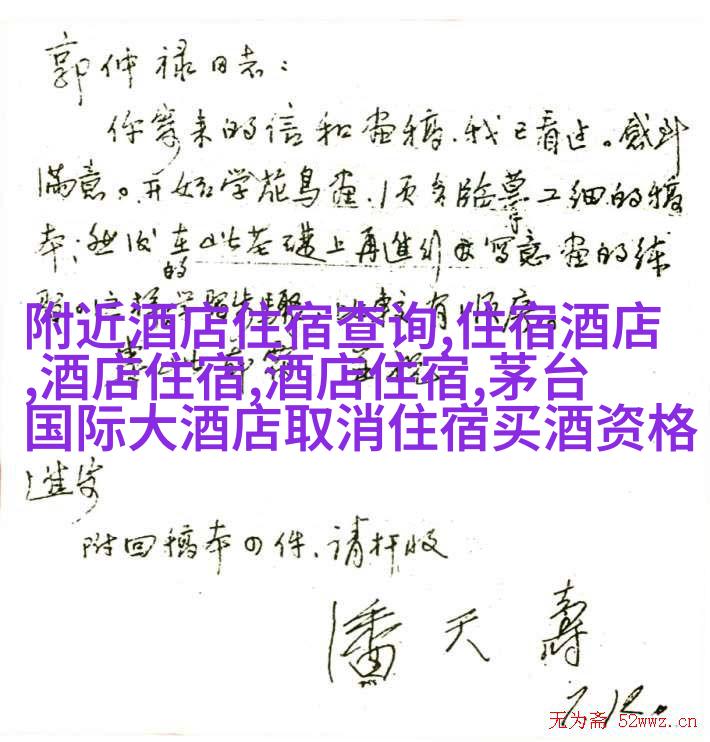 郭仲禄同志：
你寄来的信和画稿，我已看过。感到
满意。开始学花鸟画，须多临摹工细的稿
本；然后在此基础上再进行写意画的练
习。的
附近酒店住宿查询,住宿酒店
,酒店住宿,酒店住宿,茅台
国际大酒店取消住宿买酒资格
进安
附回稿本四件、请检收
潘天寿
7.12.
无为斋 52wwz.cn